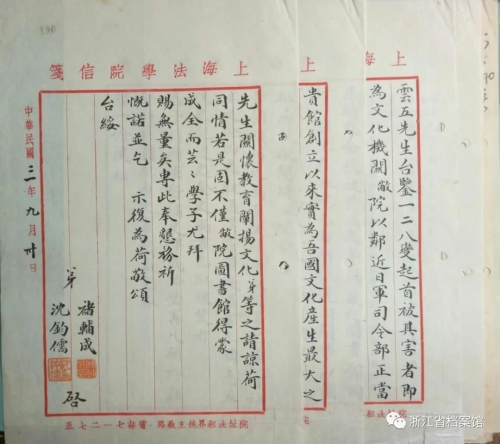 上海
雲五先生台鑒一二八變起首被其害者即
為文化機關敝院以鄰近日軍司令部正當
院址法租
上
貴館創立以來實為吾國文化產生最大之
院址
上海法學院信箋
先生關懷教育闡揚文化弟等之請諒荷
同情若是固不僅敝院圖書館得蒙
成全而芸〻學子尤拜
賜無量矣專此奉懇務祈
慨諾並乞 示復為荷敬頌
台綏
弟 褚輔成
沈鈞儒 啓
中華民國三年九月卅日
院址法租界主教路・電話七一二七五
190
@浙江省档案馆